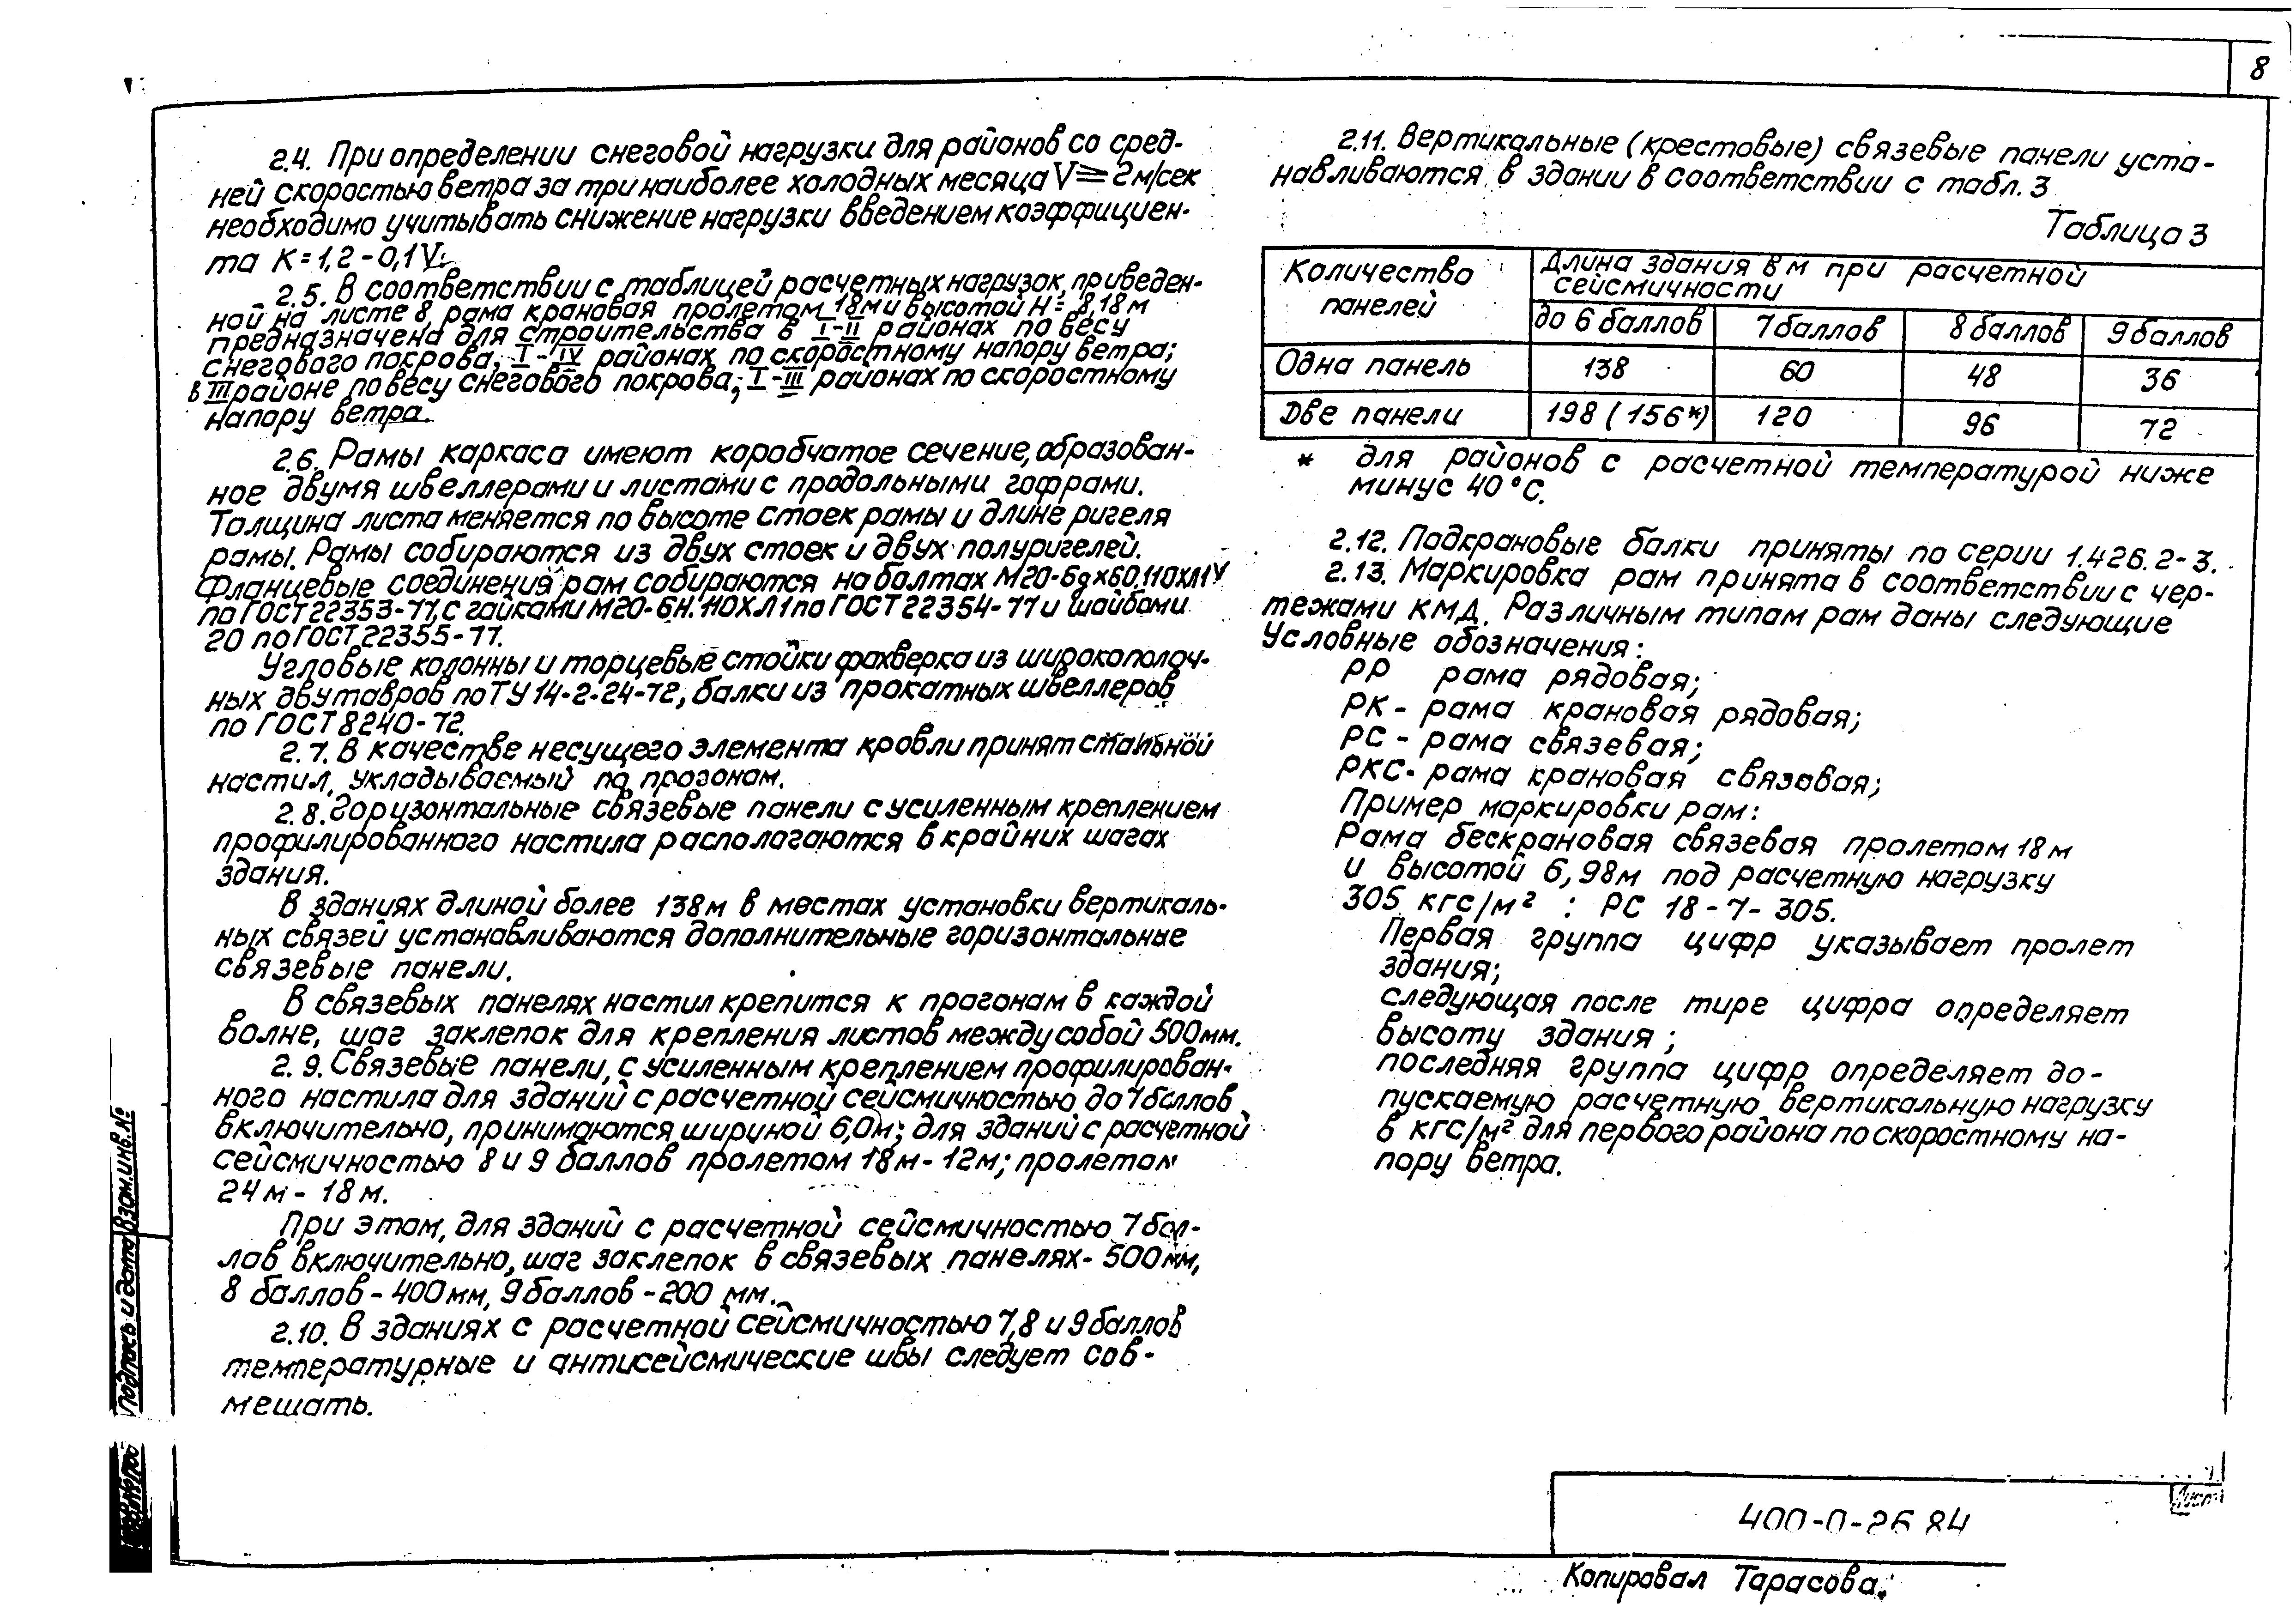 8
2.4. При определении снеговой нагрузки для районов со сред-
ней скоростью ветра за три наиболее холодных месяца V ⩾ 2 м/сек
необходимо учитывать снижение нагрузки введением коэффициен-
та K = 1,2 - 0,1 V.
2.5. В соответствии с таблицей расчетных нагрузок, приведен-
ной на листе 8 рама крановая пролетом 18 м и высотой H = 8,18 м
предназначена для строительства в I-II районах по весу
снегового покрова, I-IV районах по скоростному напору ветра;
в III районе по весу снегового покрова, I-III районах по скоростному
напору ветра.
2.6. Рамы каркаса имеют коробчатое сечение, образован-
ное двумя швеллерами и листами с продольными гофрами.
Толщина листа меняется по высоте стоек рамы и длине ригеля
рамы. Рамы собираются из двух стоек и двух полуригелей.
Фланцевые соединения рам собираются на болтах М20-6g×60.110ХЛ1У
по ГОСТ 22353-77, с гайками М20-6Н.110ХЛ1 по ГОСТ 22354-77 и шайбами
20 по ГОСТ 22355-77.
Угловые колонны и торцевые стойки фахверка из широкополоч-
ных двутавров по ТУ 14-2-24-72, балки из прокатных швеллеров
по ГОСТ 8240-72.
2.7. В качестве несущего элемента кровли принят стальной
настил, укладываемый по прогонам.
2.8. Горизонтальные связевые панели с усиленным креплением
профилированного настила располагаются в крайних шагах
здания.
В зданиях длиной более 138 м в местах установки вертикаль-
ных связей устанавливаются дополнительные горизонтальные
связевые панели.
В связевых панелях настил крепится к прогонам в каждой
волне, шаг заклепок для крепления листов между собой 500 мм.
2.9. Связевые панели, с усиленным креплением профилирован-
ного настила для зданий с расчетной сейсмичностью до 7 баллов
включительно, принимаются шириной 6,0 м; для зданий с расчетной
сейсмичностью 8 и 9 баллов пролетом 18 м - 12 м; пролетом
24 м - 18 м.
При этом, для зданий с расчетной сейсмичностью 7 бал-
лов включительно, шаг заклепок в связевых панелях - 500 мм,
8 баллов - 400 мм, 9 баллов - 200 мм.
2.10. В зданиях с расчетной сейсмичностью 7,8 и 9 баллов
температурные и антисейсмические швы следует сов-
мещать.
2.11. Вертикальные (крестовые) связевые панели уста-
навливаются в здании в соответствии с табл. 3
Таблица 3
Количество панелей Длина здания в м при расчетной
сейсмичности
до 6 баллов 7 баллов 8 баллов 9 баллов
Одна панель 138 60 48 36
Две панели 198 (156*) 120 96 72
* для районов с расчетной температурой ниже
минус 40°С.
2.12. Подкрановые балки приняты по серии 1.426.2-3.
2.13. Маркировка рам принята в соответствии с чер-
тежами КМД. Различным типам рам даны следующие
условные обозначения:
РР рама рядовая;
РК - рама крановая рядовая;
РС - рама связевая;
РКС - рама крановая связовая;
Пример маркировки рам:
Рама бескрановая связевая пролетом 18 м
и высотой 6,98 м под расчетную нагрузку
305 кгс/м² : РС 18-7-305.
Первая группа цифр указывает пролет
здания;
следующая после тире цифра определяет
высоту здания;
последняя группа цифр определяет до-
пускаемую расчетную вертикальную нагрузку
в кгс/м² для первого района по скоростному на-
пору ветра.
Взам. инв. №
Подпись и дата
400-0-26.84
Лист
Копировал Тарасова.